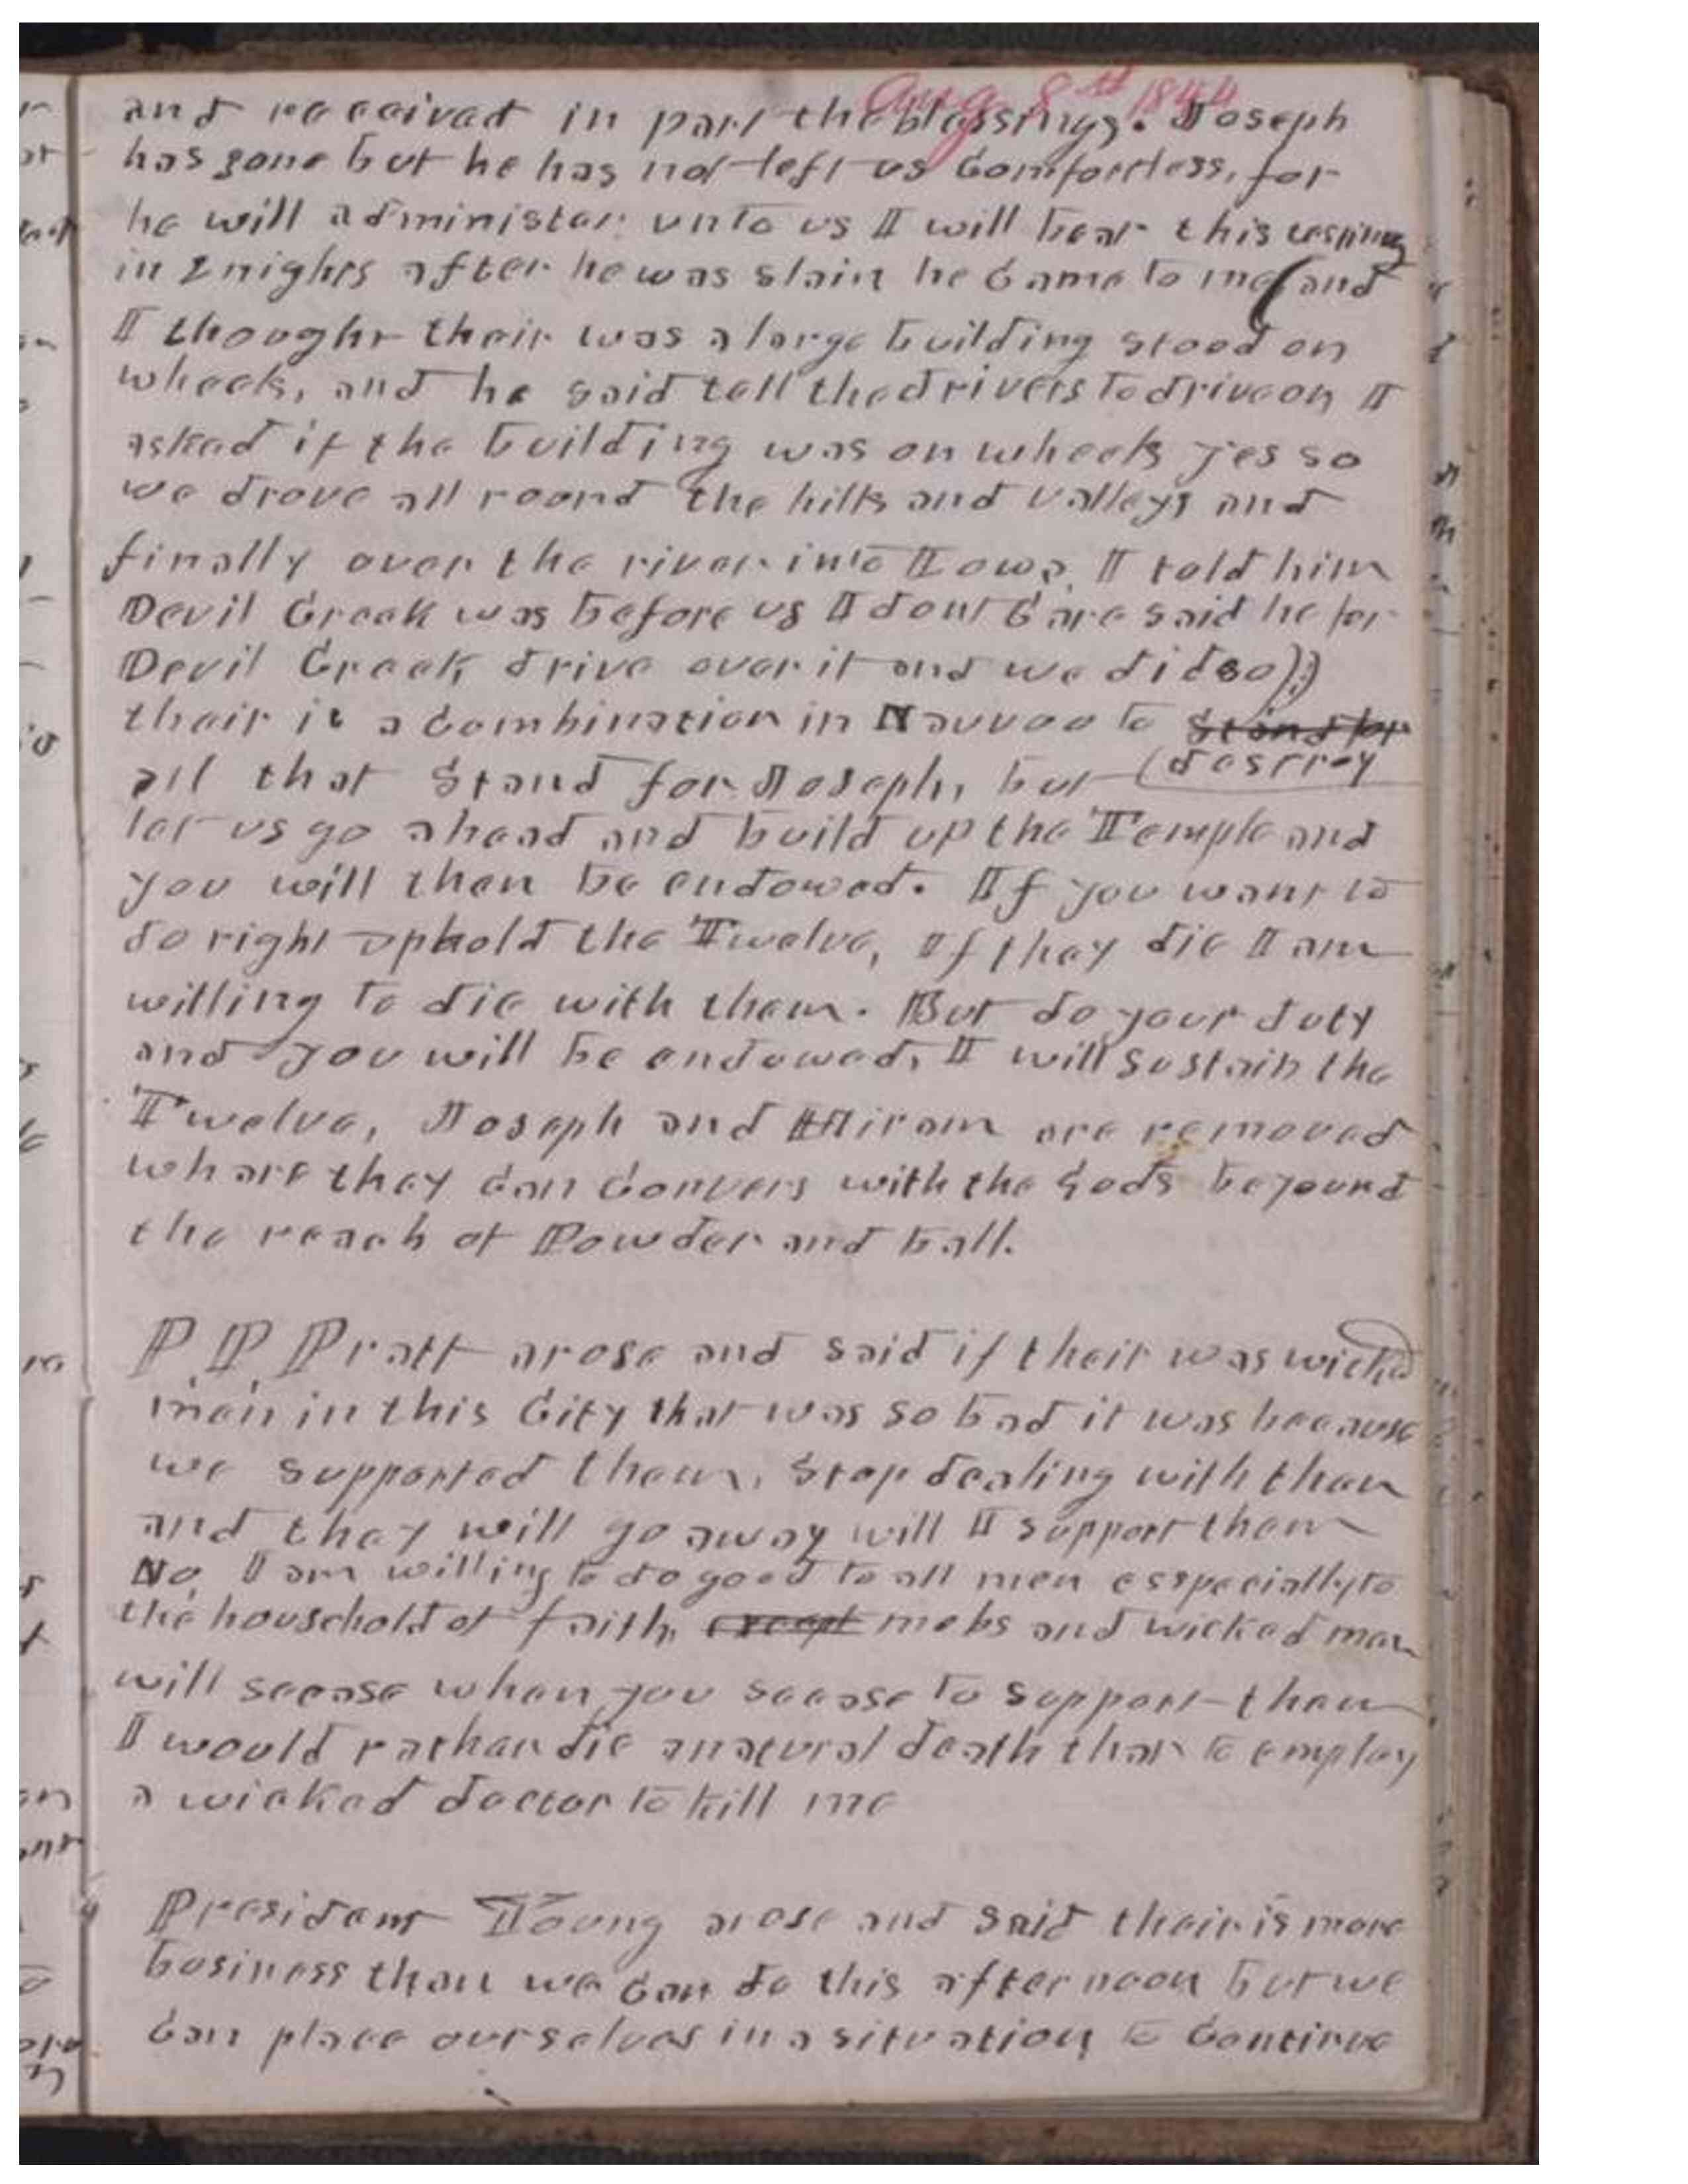 Aug 8th 1844
and received in part the blessings. Joseph
has gone but he has not left us Comfortless, for
he will administer unto us I will bear this testimony
in 2 nights after he was slain he Came to me (and
I thought their was a large building stood on
wheels, and he said tell the drivers to drive on I
asked if the building was on wheels yes so
we drove all round the hills and valleys and
finally over the river into Iowa, I told him
Devil Creek was before us I dont Care said he for
Devil Creek, drive over it and we did so))
their is a Combination in Nauvoo to Stand for
all that Stand for Joseph, but (destroy
let us go ahead and build up the Temple and
you will then be endowed. If you want to
do right uphold the Twelve, If they die I am
willing to die with them. But do your duty
and you will be endowed, I will Sustain the
Twelve, Joseph and Hiram are removed
whare they Can Convers with the Gods beyound
the reach of Powder and ball.
P. P. Pratt arose and said if their was wicked
men in this City that was so bad it was because
we supported them, Stop dealing with them
and they will go away will I support them
No, I am willing to do good to all men esspecially to
the household of faith, except mobs and wicked men
will secase when you secase to support them
I would rather die a natural death than to employ
a wicked doctor to kill me
President Young arose and Said their is more
business than we Can do this afternoon but we
Can place ourselves in a situation to Continue